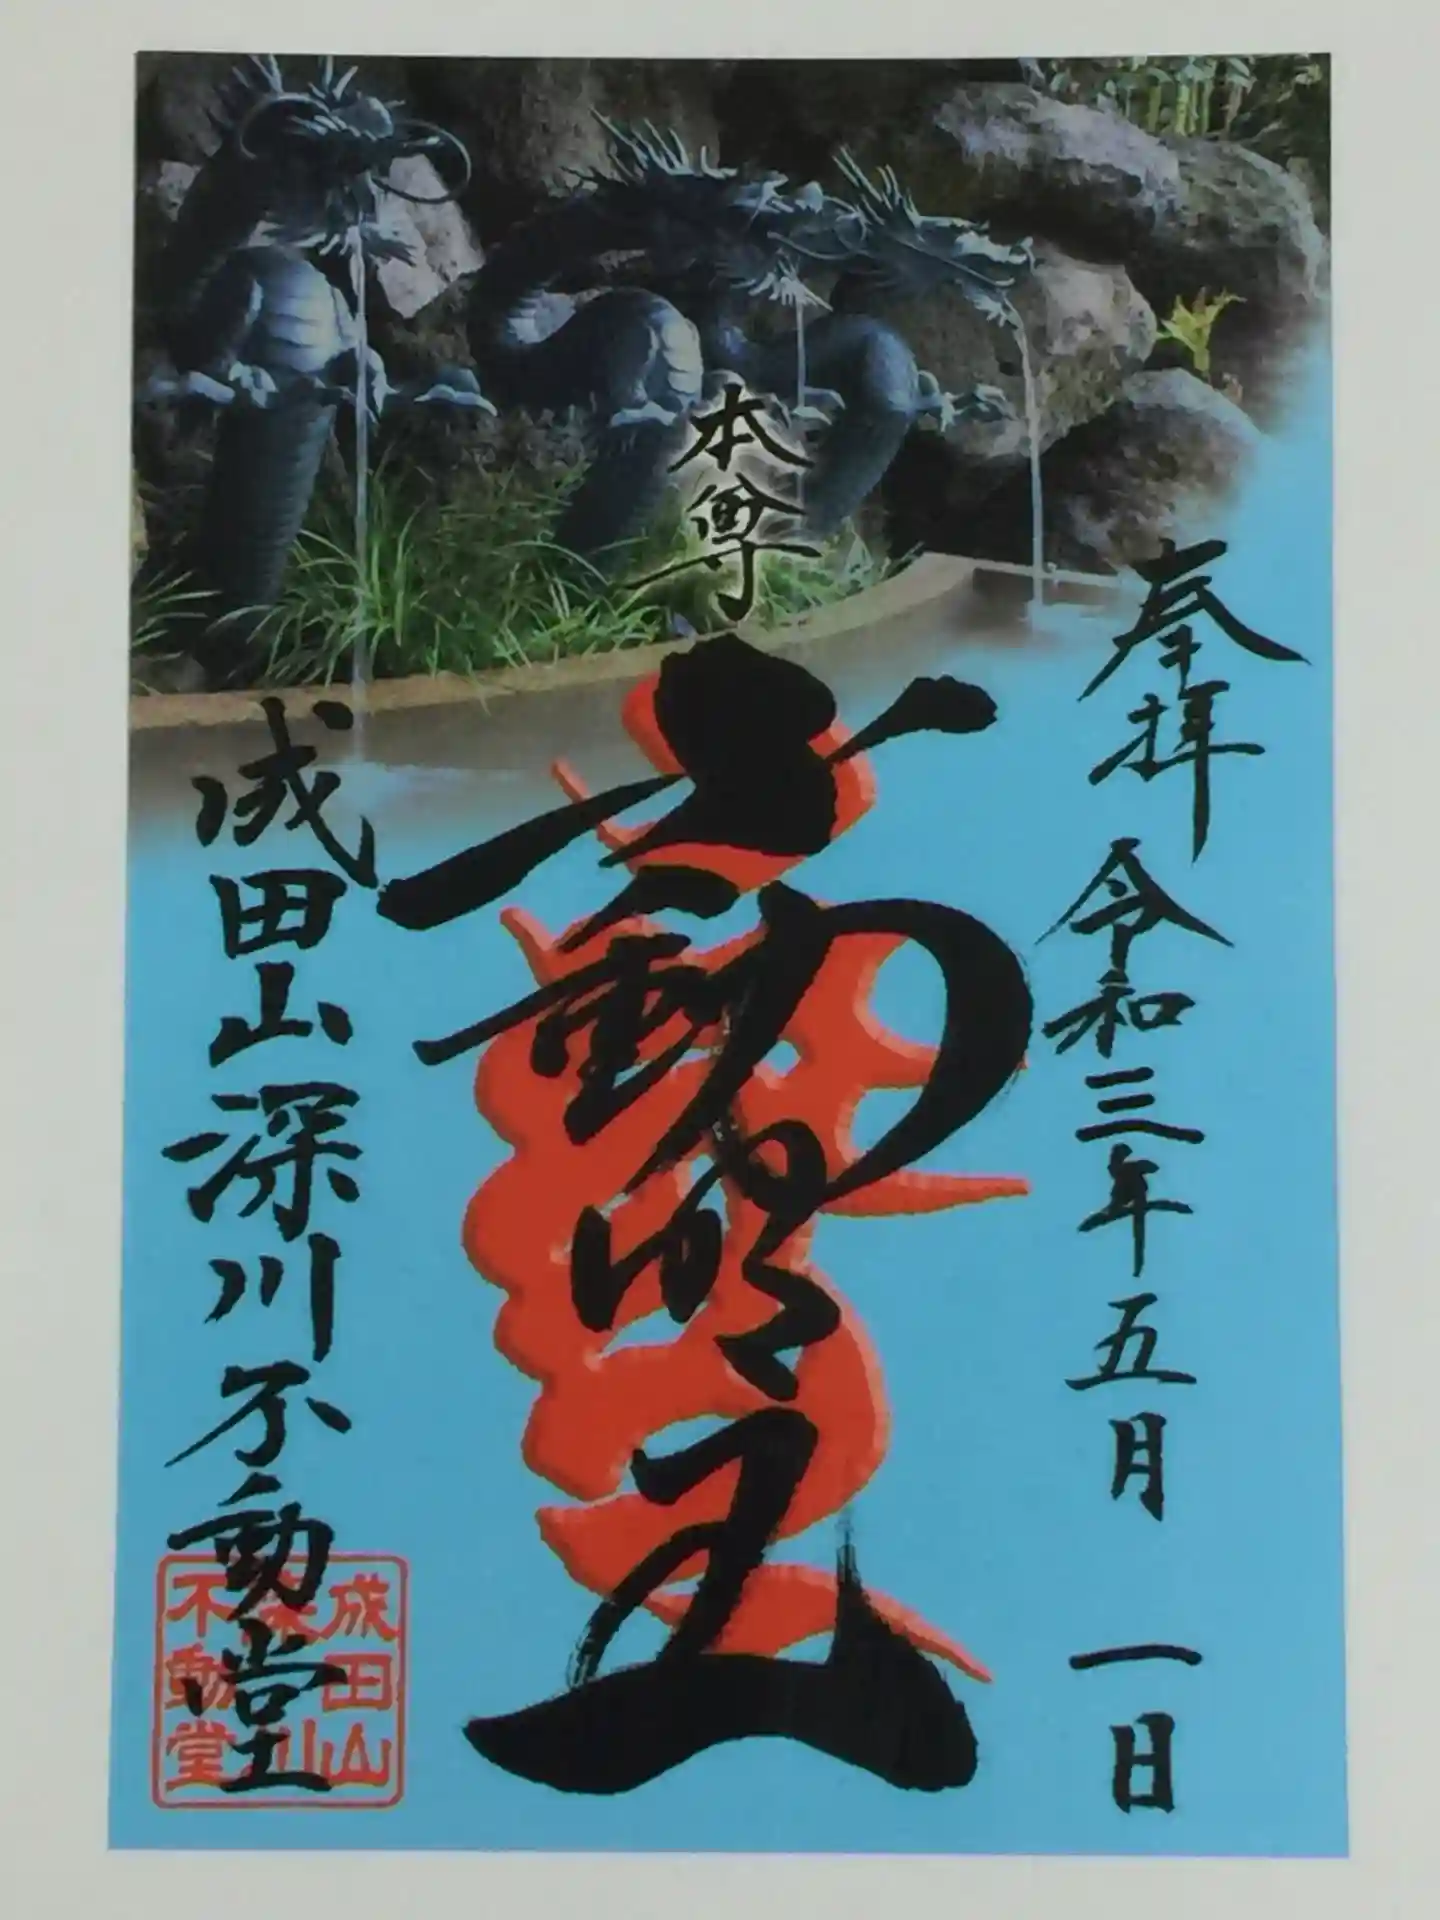 奉拝
令和三年五月一日
本尊
不動明王
成田山深川不動堂
成田山
深川
不動堂